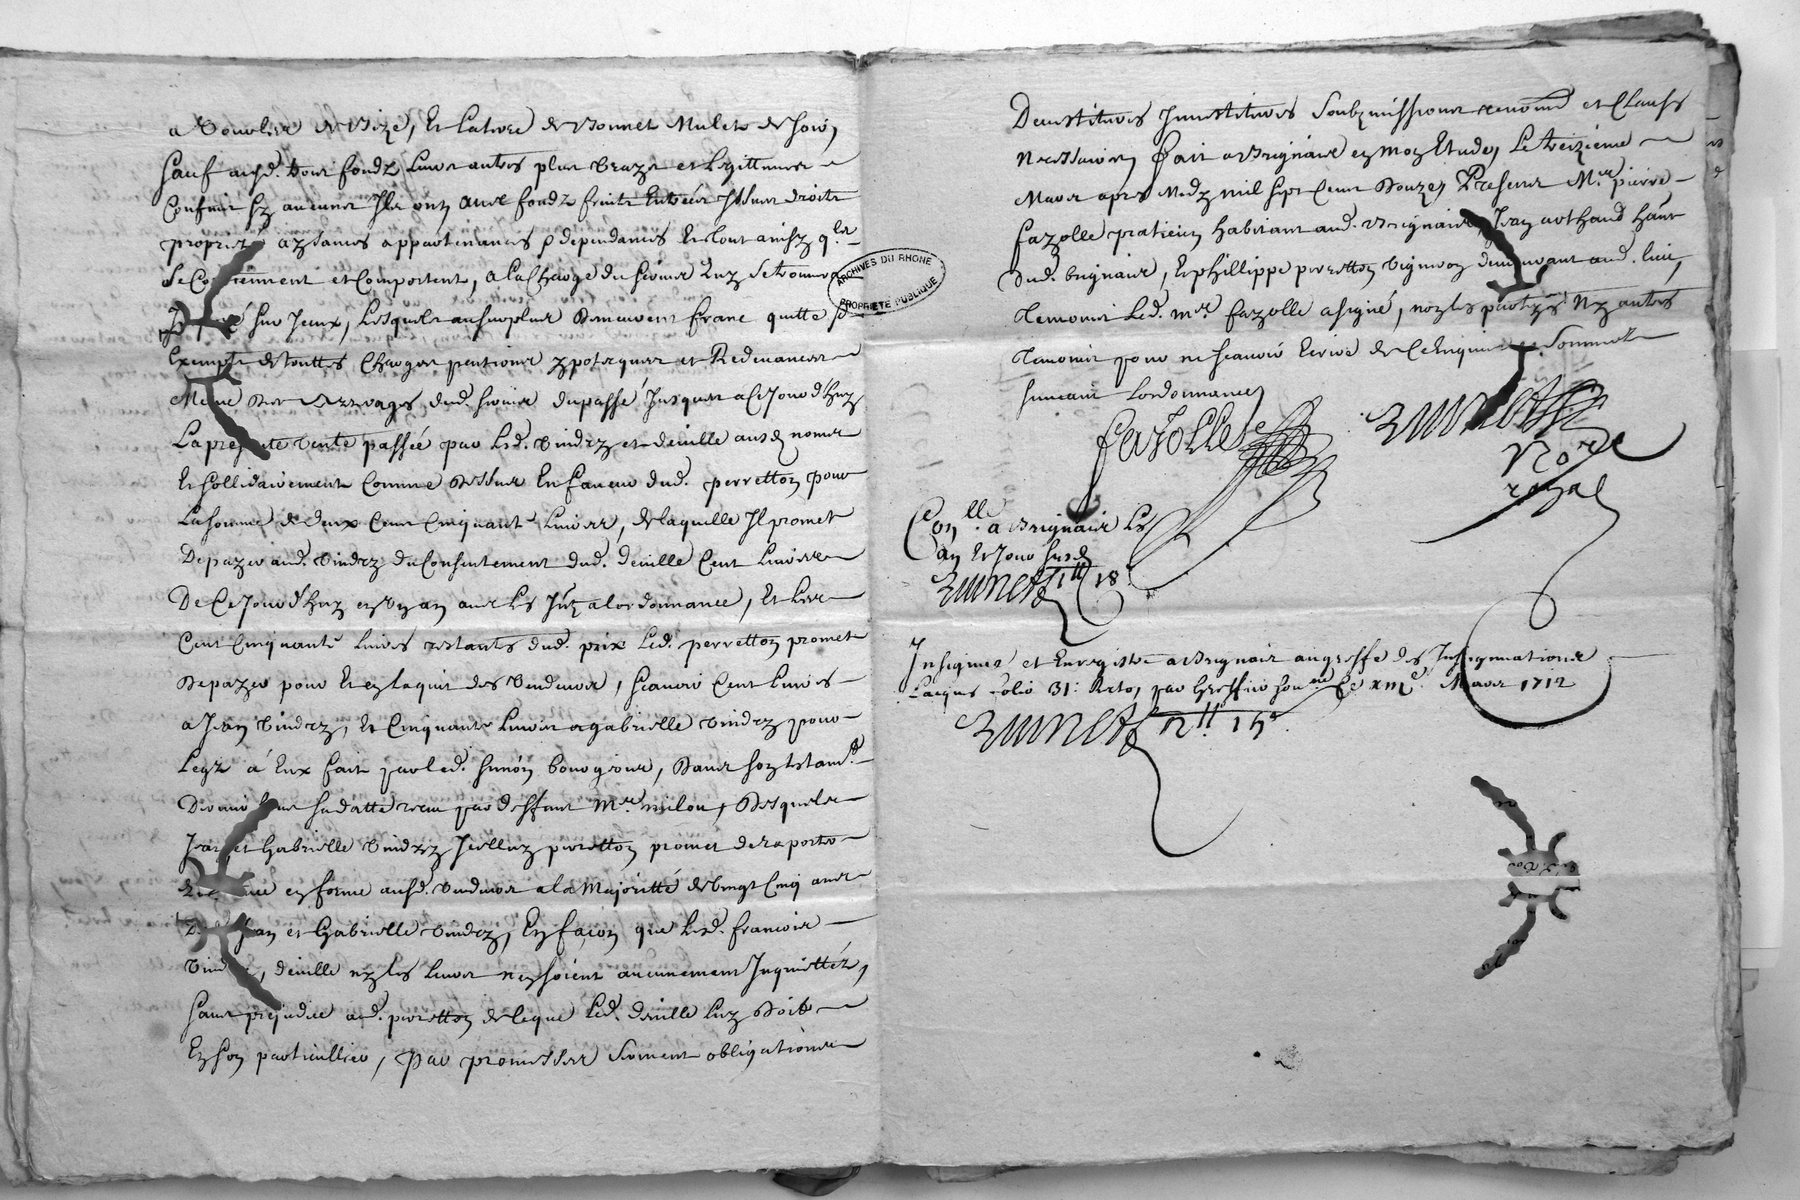 a de bize, et la terre de bonnet Mulet de soir,
sauf ausd. fondz leurs autres plus vrays et legittimes
confins sy aucuns ils ont avec fondz fruits entrées issues droits
proprietés aysances appartenances & dependances et tout ainsy qls.
se et comportent, a la charge du servis quy se trouvera
sur iceux, lesquels au surplus demeurent franc quitte &
exempts de touttes charges pentions ypoteques et Redevances
Mesme des arrerages dud. servis du passé jusques a ce jourd'huy
La presente vente passée par lesd. Vindry et deville ausd. noms
et sollidairement comme dessus en faveur dud. perretton pour
La somme de deux cent cinquante livres, de laquelle Il promet
De payer aud. Vindry du consentement dud. deville cent livres
De ce jourd'huy en un an avec les a lordonnance, et les
cent cinquante livres restants dud. prix led. perretton promet
De payer pour et en laquit des vendeurs, scavoir cent livres
a Jean Vindry, et cinquante livres a gabrielle Vindry pour
Legz a eux fait par led. simon bourgeois, dans son testamt.
sa datte receu par deffunt Mr. milou, desquels
Jean et Gabrielle Vindry Icelluy perretton promet de raporter
en forme ausd. vendeurs a la Majoritté de vingt cinq ans
D. Jean et Gabrielle Vindry, En façon que lesd. francois
Vindry, deville ny les leurs n'en soient aucunement Inquiettés,
sans prejudice aud. perretton de ce que led. deville luy doit
En son particullier, par promesses serment obligations
Constitues soubzmissions renond et clauses
necessaires, fait a Brignais en mon Etude, Le treizieme
Mars apres Midy mil sept cent douze, Presents Mr. pierre
fazolle praticien habitant aud. Brignais, Jean arthaud hante
dud. brignais, et phillippe perretton vigneron demeurant aud. lieu,
temoins led. mr. fazolle a signé, non les partyes ny autres
temoins pour ne scavoir ecrire de ce enquis et sommés
suivant lordonnance
fazolle
Nore
royal
Conlle. a Brignais les
an et jour susd.
Insignué et Enregistré a Brignais au greffe des Insignuations
Laiques folio 31: Recto, par Greffier soussné ce xme. Mars 1712